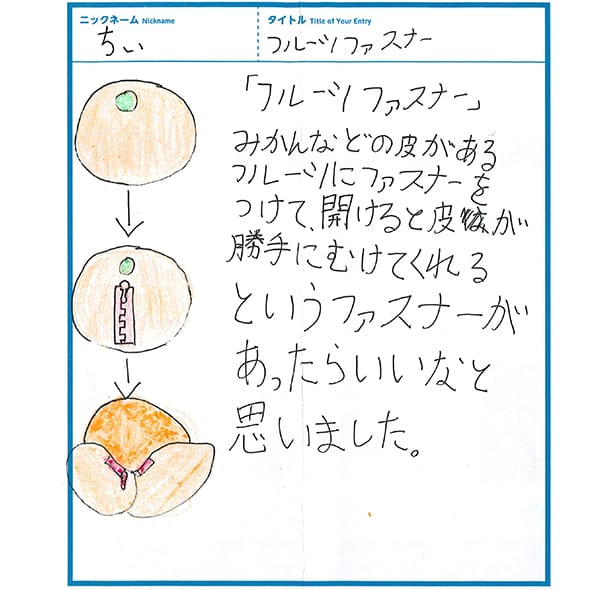 ニックネーム Nickname
タイトル Title of Your Entry
ちい
フルーツファスナー
「フルーツファスナー」
みかんなどの皮がある
フルーツにファスナーを
つけて、開けると皮が
勝手にむけてくれる
というファスナーが
あったらいいなと
思いました。